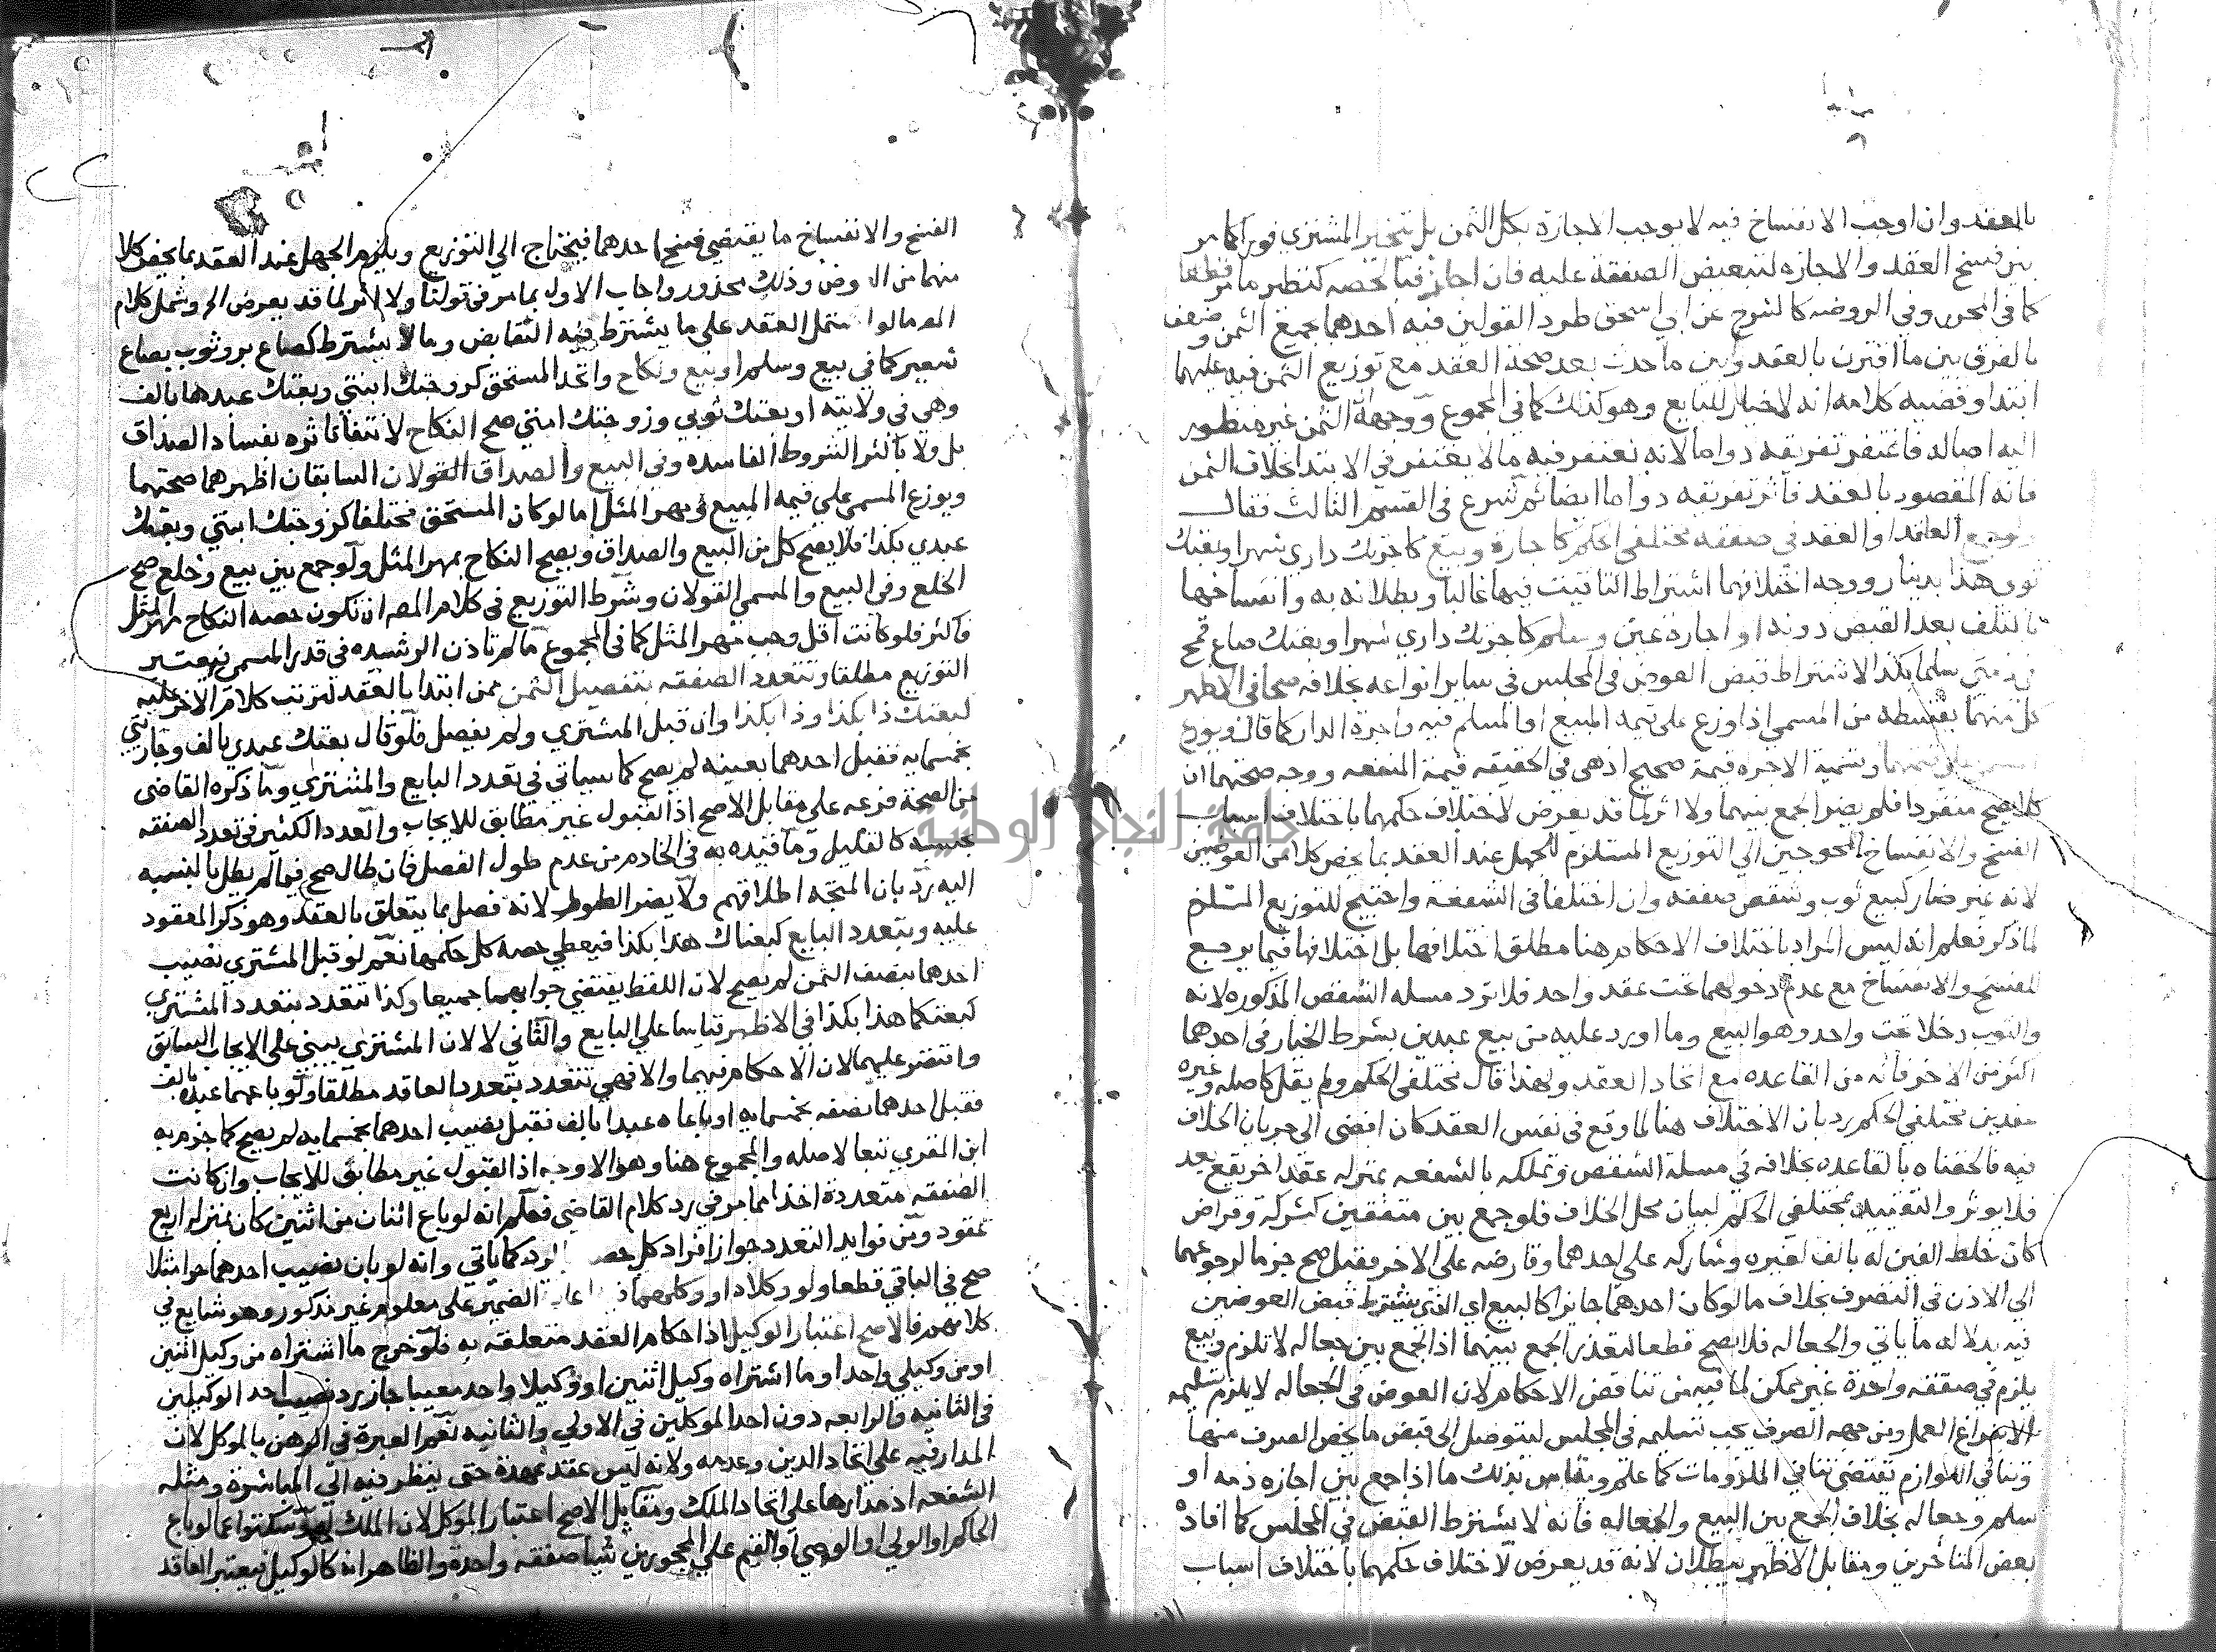 بالعقد وان اوجب الانفساخ فيه لا يوجب الاجازة بكل الثمن بل يتخير المشتري فورا كما مر
بين فسخ العقد والاجازه لتبعيض الصفقة عليه فان اجاز فبالحصه كنظير ما مر قطعا
كما في المحرر وفي الروضه كالشرح عن ابي اسحق طرد القولين فيه احدهما بجميع الثمن وضعف
بالفرق بين ما اقترن بالعقد وبين ما حدث بعد صحة العقد مع توزيع الثمن فيه عليهما
ابتدا وقضيه كلامه انه لا خيار للبايع وهو كذلك كما في المجموع ووجهه ان الثمن غير منظور
اليه اصاله فاغتفر تفريقه دواما لانه يغتفر فيه ما لا يغتفر في الابتدا بخلاف الثمن
فانه المقصود بالعقد فاثر تفريقه دواما ايضا ثم شرع في القسم الثالث فقال
ولو جمع العاقد او العقد في صفقه مختلفي الحكم كاجارة وبيع كاجرتك داري شهرا وبعتك
ثوبي هذا بدينار ووجه اختلافهما اشتراط التاقيت فيها غالبا وبطلانه به وانفساخها
بالتلف بعد القبض دونه او اجارة عين وسلم كاجرتك داري شهرا وبعتك صاع قمح
في ذمتي سلما بكذا لاشتراط قبض العوض في المجلس في ساير انواعه بخلافه صحا في الاظهر
كل منهما بقسطه من المسمى اذا وزع على قيمه المبيع او المسلم فيه واجرة الدار كما قال ويوزع
المسمى على قيمتهما وتسمية الاجره قيمة صحيح اذ هي في الحقيقه قيمة المنفعه ووجه صحتهما ان
كلا يصح منفردا فلم يضر الجمع بينهما ولا اثر لما قد يعرض لاختلاف حكمهما باختلاف اسباب
الفسخ والانفساخ المحوجين الي التوزيع المستلزم للجهل عند العقد بما يخص كلا من العوضين
لانه غير ضار كبيع ثوب وشقص صفقه وان اختلفا في الشفعه واحتيج للتوزيع المستلزم
لما ذكر فعلم انه ليس المراد باختلاف الاحكام هنا مطلق اختلافها بل اختلافها فيما يرجع
للفسخ والانفساخ مع عدم دخولهما تحت عقد واحد فلا ترد مسله الشقص المذكوره لانه
والثوب دخلا تحت واحد وهو البيع وما اورد عليه من بيع عبدين بشرط الخيار في احدهما
اكثر من الاخر فانه من القاعده مع اتحاد العقد ولهذا قال مختلفي الحكم ولم يقل كاصله وغيره
عقدين مختلفي الحكم رد بان الاختلاف هنا لما وقع في نفس العقد كان افضى الى جريان الخلاف
فيه فالحقناه بالقاعده بخلافه في مسلة الشقص وتملكه بالشفعه بمنزله عقد اخر يقع بعد
فلا يوثر والتقييد بمختلفي الحكم لبيان محل الخلاف فلو جمع بين متفقين كشركة وقراض
كان خلط الفين له بالف لغيره وشاركه على احدهما وقارضه على الاخر فقبل صح جزما لرجوعهما
الي الاذن في التصرف بخلاف ما لو كان احدهما جايزا كالبيع اي الذي يشترط قبض العوضين
فيه بدلاله ما ياتي والجعاله فلا يصح قطعا لتعذر الجمع بينهما اذ الجمع بين جعاله لا تلزم وبيع
يلزم في صفقه واحدة غير ممكن لما فيه من تناقض الاحكام لان العوض في الجعاله لا يلزم تسليمه
الا بفراغ العمل ومن جهه الصرف يجب تسليمه في المجلس ليتوصل الى قبض ما يخص الصرف منها
وتنافي اللوازم يقتضي تنافي الملزومات كما علم ويقاس بذلك ما اذا جمع بين اجاره ذمه او
سلم وجعاله بخلاف الجمع بين البيع والجعاله فانه لا يشترط القبض في المجلس كما افاده
بعض المتاخرين ومقابل الاظهر يبطلان لانه قد يعرض لاختلاف حكمهما باختلاف اسباب
الفسخ والانفساخ ما يقتضي فسخ احدهما فيحتاج الي التوزيع ويلزم الجهل عند العقد بما يخص كلا
منهما من العوض وذلك محذور واجاب الاول بما مر في قولنا ولا اثر لما قد يعرض الى وشمل كلام
المص ما لو اشتمل العقد على ما يشترط فيه التقابض وما لا يشترط كصاع بر وثوب بصاع
شعير كما في بيع وسلم او بيع ونكاح واتحد المستحق كزوجتك ابنتي وبعتك عبدها بالف
وهي في ولايته او بعتك ثوبي وزوجتك امتي صح النكاح لانتفا تاثره بفساد الصداق
بل ولا باكثر الشروط الفاسده وفي البيع والصداق القولان السابقان اظهرهما صحتهما
ويوزع المسمى علي قيمه المبيع ومهر المثل اما لو كان المستحق مختلفا كزوجتك ابنتي وبعتك
عبدي بكذا فلا يصح كل من البيع والصداق ويصح النكاح بمهر المثل ولو جمع بين بيع وخلع صح
الخلع وفي البيع والمسمى القولان وشرط التوزيع في كلام المص ان تكون حصه النكاح مهر المثل
فاكثر فلو كانت اقل وجب مهر المثل كما في المجموع ما لم تاذن الرشيده في قدر المسمى فيعتبر
التوزيع مطلقا وتتعدد الصفقه بتفصيل الثمن ممن ابتدا بالعقد لترتب كلام الاخر عليه
كبعتك ذا بكذا وذا بكذا وان قبل المشتري ولم يفصل فلو قال بعتك عبدي بالف وجاريتي
بخمسمايه فقبل احدهما بعينه لم يصح كما سياتي في تعدد البايع والمشتري وما ذكره القاضي
من الصحة فرعه على مقابل الاصح اذ القبول غير مطابق للايجاب والعدد الكثير في تعدد الصفقه
بجنسه كالقليل وما قيده به في الخادم من عدم طول الفصل فان طال صح فيما لم يطل بالنسبه
اليه رد بان المتجه اطلاقهم ولا يضر الطول لانه فصل بما يتعلق بالعقد وهو ذكر المعقود
عليه وبتعدد البايع كبعناك هذا بكذا فيعطي حصه كل حكمها نعم لو قبل المشتري نصيب
احدهما بنصف الثمن لم يصح لان اللفظ يقتضي جوابهما جميعا وكذا تتعدد بتعدد المشتري
كبعتكما هذا بكذا في الاظهر قياسا علي البايع والثاني لا لان المشتري يبني علي الايجاب السابق
وانتصر عليهما لان الاحكام فيهما والا فهي تتعدد بتعدد العاقد مطلقا ولو باعهما عبده بالف
فقبل احدهما نصفه بخمسمايه او باعاه عبدا بالف فقبل نصيب احدهما بخمسمايه لم يصح كما جزم به
ابن المقري تبعا لاصله والمجموع هنا وهو الاوجه اذ القبول غير مطابق للايجاب وان كانت
الصفقه متعددة اخذا مما مر في رد كلام القاضي فعلم انه لو باع اثنان من اثنين كان بمنزله اربع
عقود ومن فوايد التعدد جواز افراد كل حصه بالرد كما ياتي وانه لو بان نصيب احدهما حرا مثلا
صح في الباقي قطعا ولو وكلاه او وكلهما فاعاد الضمير على معلوم غير مذكور وهو شايع في
كلامهم فالاصح اعتبار الوكيل اذ احكام العقد متعلقه به فلو خرج ما اشتراه من وكيل اثنين
او من وكيلي واحد او ما اشتراه وكيل اثنين او وكيلا واحد معيبا جاز رد نصيب احد الوكيلين
في الثانيه والرابعه دون احد الموكلين في الاولي والثانيه نعم العبرة في الرهن بالموكل لان
المدار فيه على اتحاد الدين وعدمه ولانه ليس عقد عهدة حتى ينظر فيه الي المباشرة ومثله
الشفعه اذ مدارها على اتحاد الملك ومقابل الاصح اعتبار الموكل لان الملك له وسكتوا عما لو باع
الحاكم او الولي او الوصي او القيم علي المحجورين شيا صفقه واحدة والظاهر انه كالوكيل فيعتبر العاقد
جامعة النجاح الوطنية